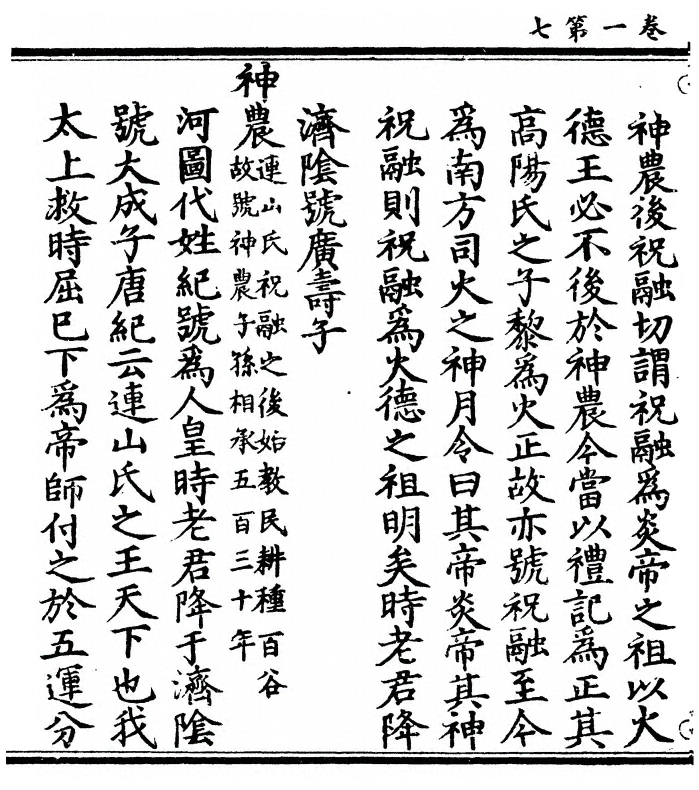 卷一第七
神農後祝融切謂祝融爲炎帝之祖以火
德王必不後於神農今當以禮記爲正其
高陽氏之子黎爲火正故亦號祝融至今
爲南方司火之神月令曰其帝炎帝其神
祝融則祝融爲火德之祖明矣時老君降
濟陰號廣壽子
神農連山氏祝融之後始教民耕種百谷
故號神農子孫相承五百三十年
河圖代姓紀號爲人皇時老君降于濟陰
號大成子唐紀云連山氏之王天下也我
太上救時屈已下爲帝師付之於五運分